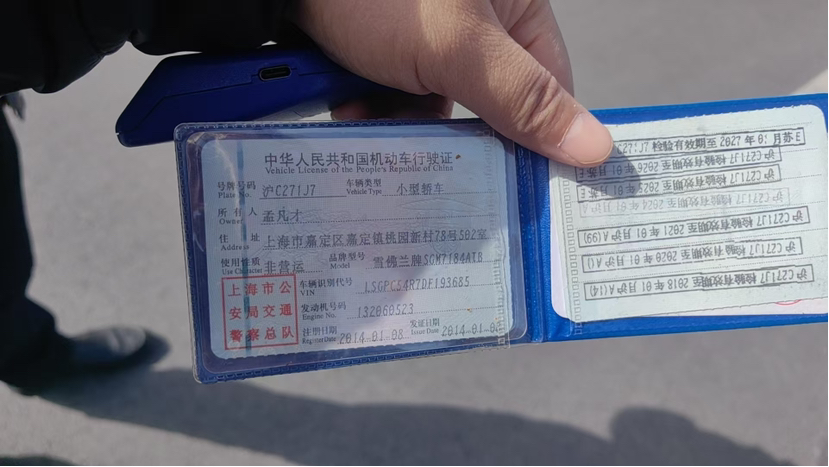 中华人民共和国机动车行驶证
Vehicle License of the People's Republic of China
号牌号码 沪C271J7 车辆类型 小型轿车
Plate No. Vehicle Type
所有人 孟凡才
Owner
住址 上海市嘉定区嘉定镇桃园新村78号502室
Address
使用性质 非营运 品牌型号 雪佛兰牌SGM7184ATB
Use Character Model
上海市公安局交通警察总队
车辆识别代号 LSGPC54R7DF193685
VIN
发动机号码 132060523
Engine No.
注册日期 2014-01-08 发证日期 2014-01-08
Register Date Issue Date
C271J7 检验有效期至 2027年01月苏E
沪C271J7 检验有效期至 2026年01月
沪C271J7 检验有效期至 2025年01月
沪C271J7 检验有效期至 2024年01月
沪C271J7 检验有效期至 2021年01月沪A(99)
沪C271J7 检验有效期至 2020年01月沪A
沪C271J7 检验有效期至 2018年01月沪A(14)